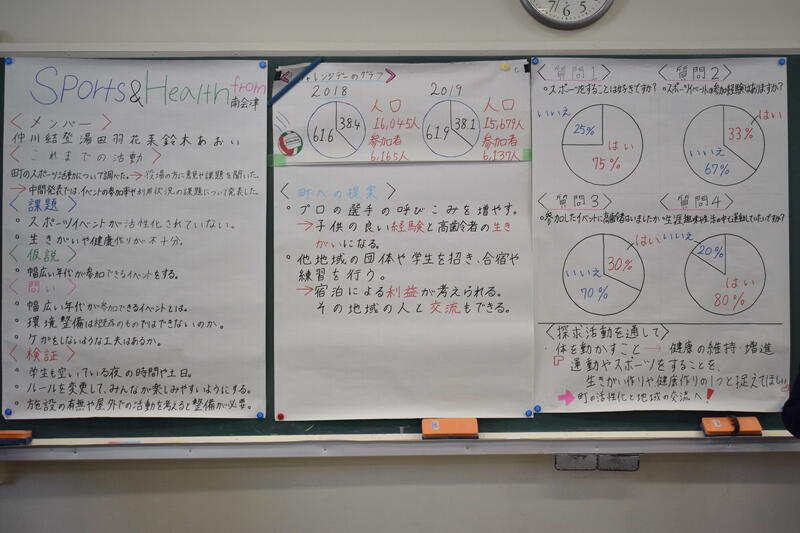 Sports & Health from 南会津
〈メンバー〉
仲川結登 湯田羽花菜 鈴木あおい
〈これまでの活動〉
町のスポーツ活動について調べた。→役場の方に意見や課題を聞いた。
→中間発表では、イベントの参加率や利用状況の課題について発表した。
〈課題〉
・スポーツイベントが活性化されていない。
・生きがいや健康作りが不十分。
〈仮説〉
・幅広い年代が参加できるイベントをする。
〈問い〉
・幅広い年代が参加できるイベントとは。
・環境整備は既存のものではできないのか。
・ケガをしないような工夫はあるか。
〈検証〉
・学生も空いている夜の時間や土日。
・ルールを変更して、みんなが楽しみやすいようにする。
・施設の有無や屋外での活動を考えると整備が必要。
チャレンジデーのグラフ
2018
61.6
38.4
人口
16,045人
参加者
6,165人
2019
61.9
38.1
人口
15,679人
参加者
6,137人
〈町への提案〉
・プロの選手の呼びこみを増やす。
→子供の良い経験と高齢者の生き
がいになる。
・他地域の団体や学生を招き、合宿や
練習を行う。
→宿泊による利益が考えられる。
その地域の人と交流もできる。
〈質問1〉
・スポーツをすることは好きですか?
いいえ
25%
はい
75%
〈質問2〉
・スポーツイベントの参加経験はありますか?
はい
33%
いいえ
67%
〈質問3〉
・参加したイベントに高齢者はいましたか
はい
30%
いいえ
70%
〈質問4〉
いいえ
20%
はい
80%
〈探求活動を通して〉
・体を動かすこと→健康の維持・増進
運動やスポーツをすることを、
生きがい作りや健康作りの1つと捉えてほしい
→町の活性化と地域の交流へ!